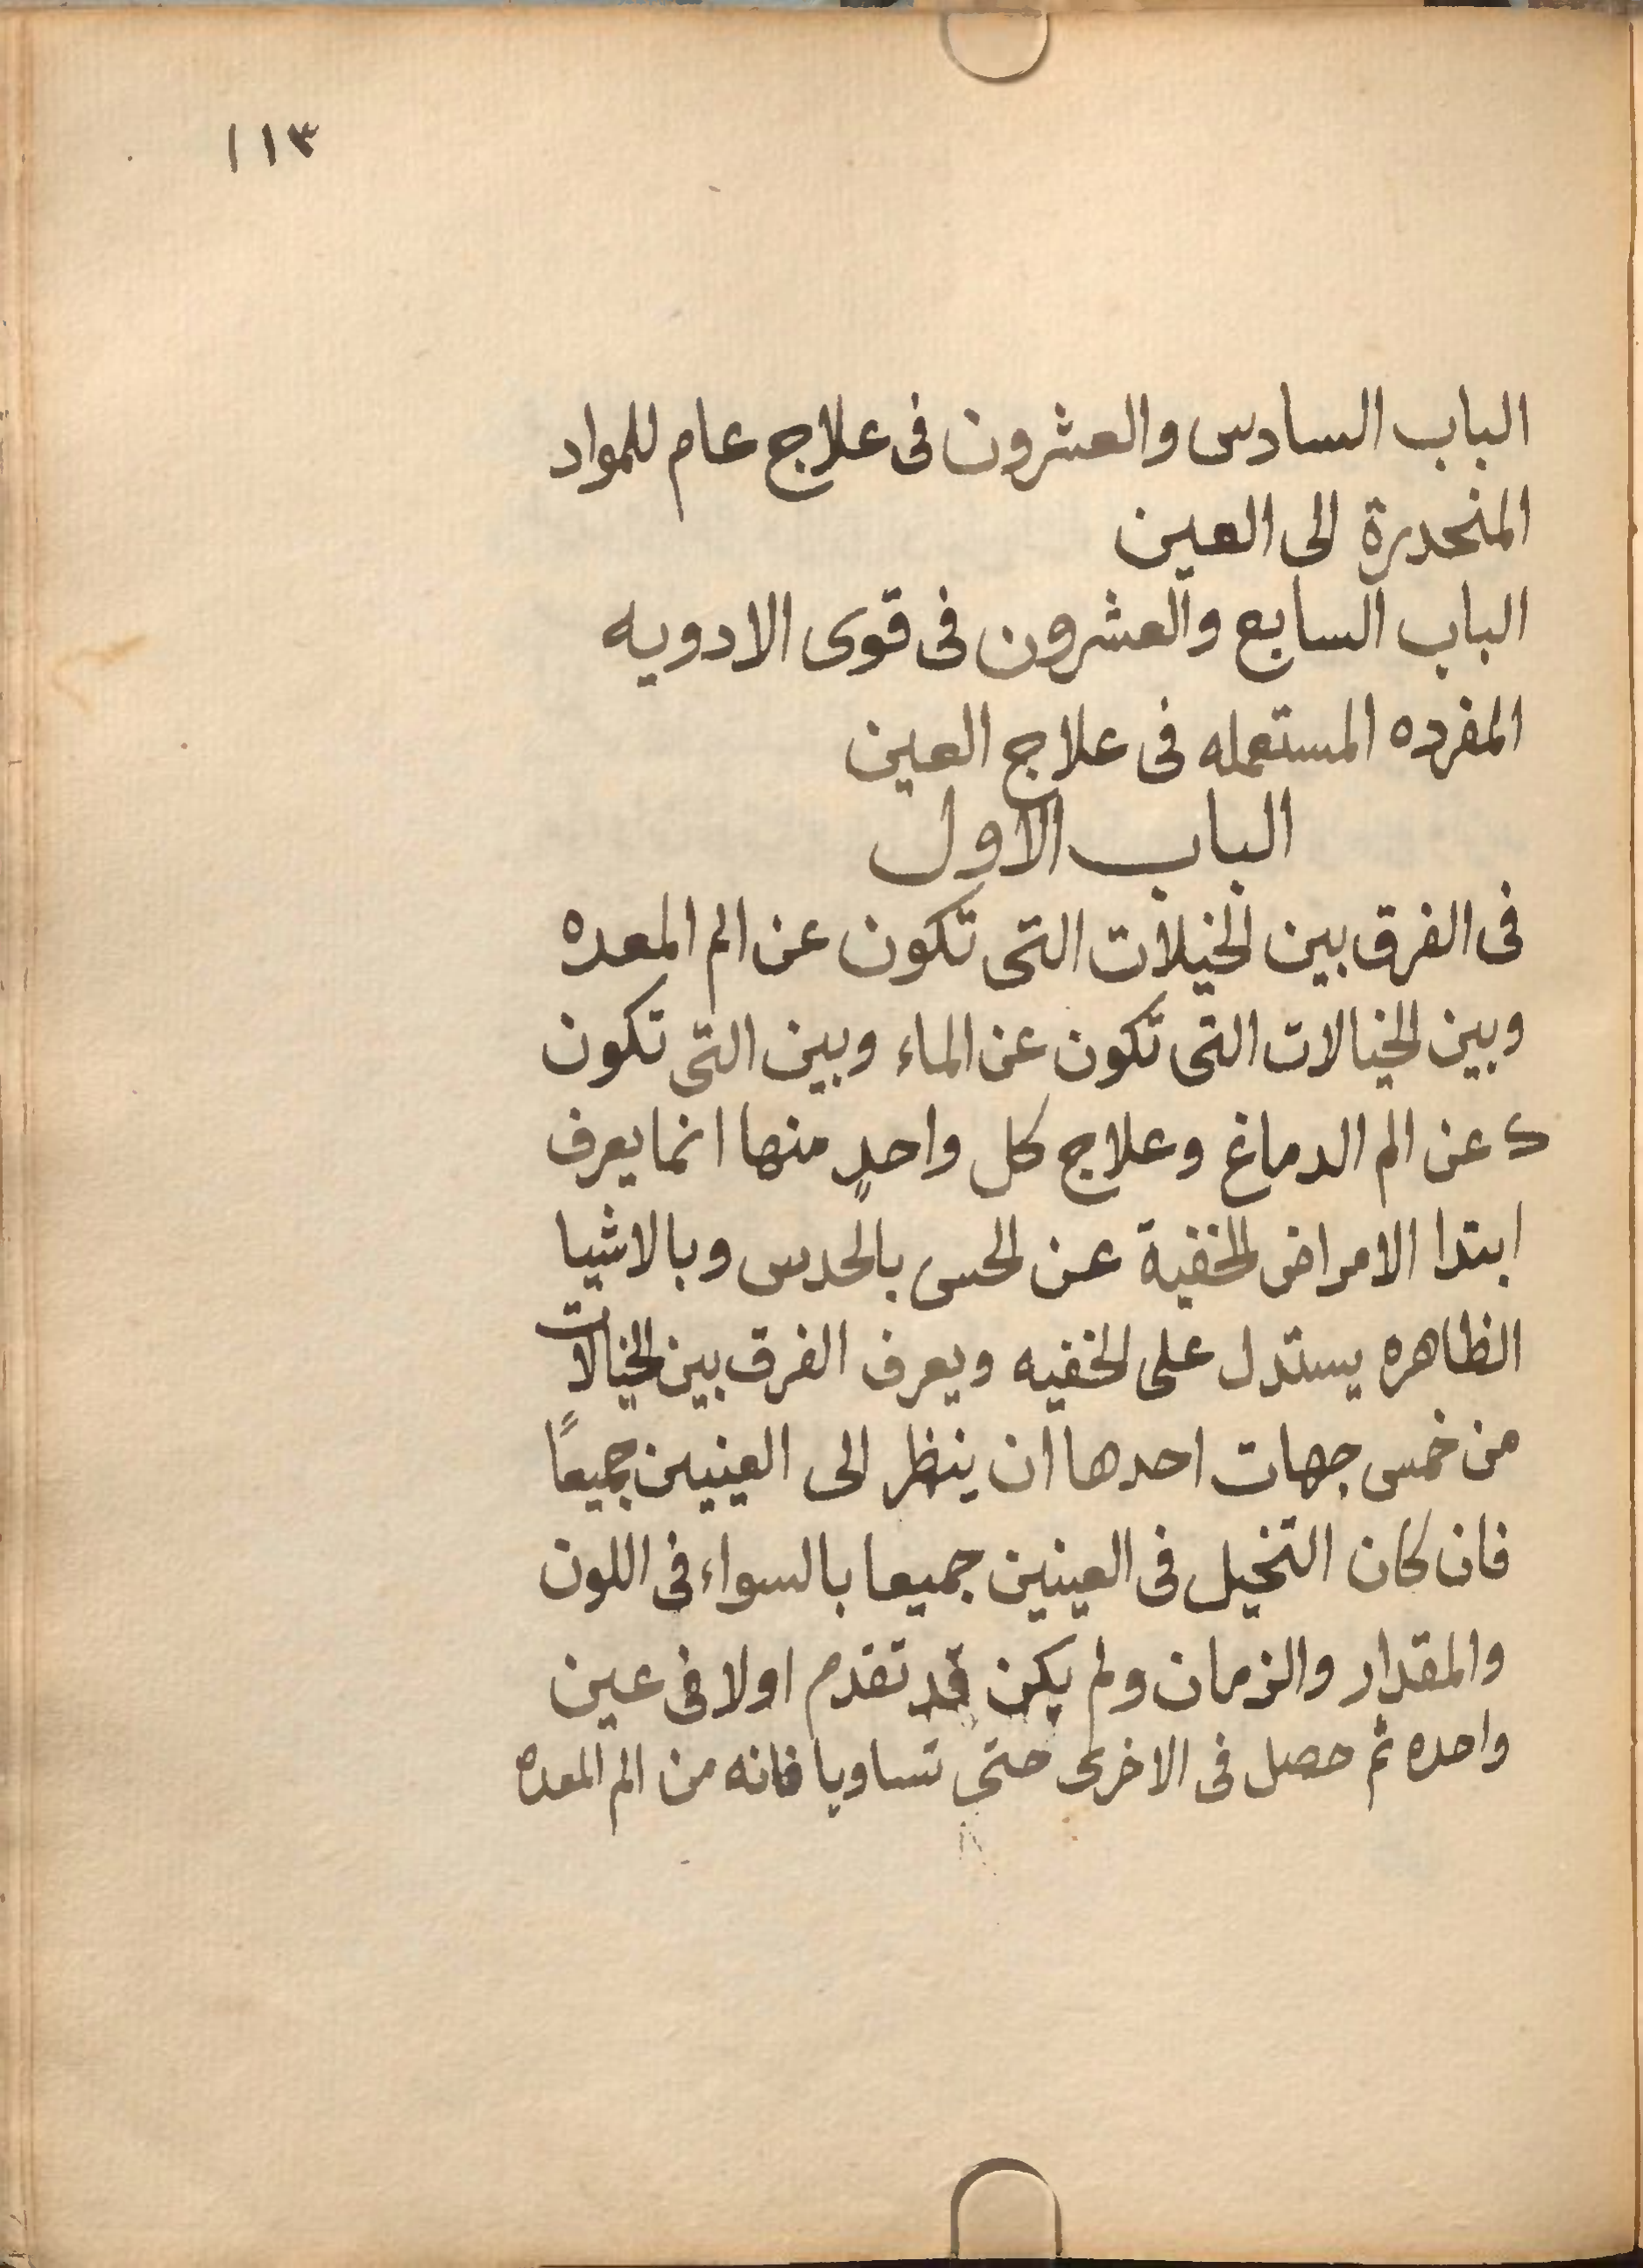 ١١٣
الباب السادس والعشرون فى علاج عام للمواد
المنحدرة الى العين
الباب السابع والعشرون فى قوى الادويه
المفرده المستعمله فى علاج العين
الباب الاول
فى الفرق بين الخيلات التى تكون عن الم المعده
وبين الخيالات التى تكون عن الماء وبين التى تكون
عن الم الدماغ وعلاج كل واحدٍ منها انما يعرف
ابتدا الامراض الخفية عن الحس بالحدس وبالاشيا
الظاهره يستدل على الخفيه ويعرف الفرق بين الخيالات
من خمس جهات احدها ان ينظر الى العينين جميعًا
فان كان التخيل فى العينين جميعا بالسواء فى اللون
والمقدار والزمان ولم يكن قد تقدم اولا فى عين
واحده ثم حصل فى الاخرى حتى تساويا فانه من الم المعده